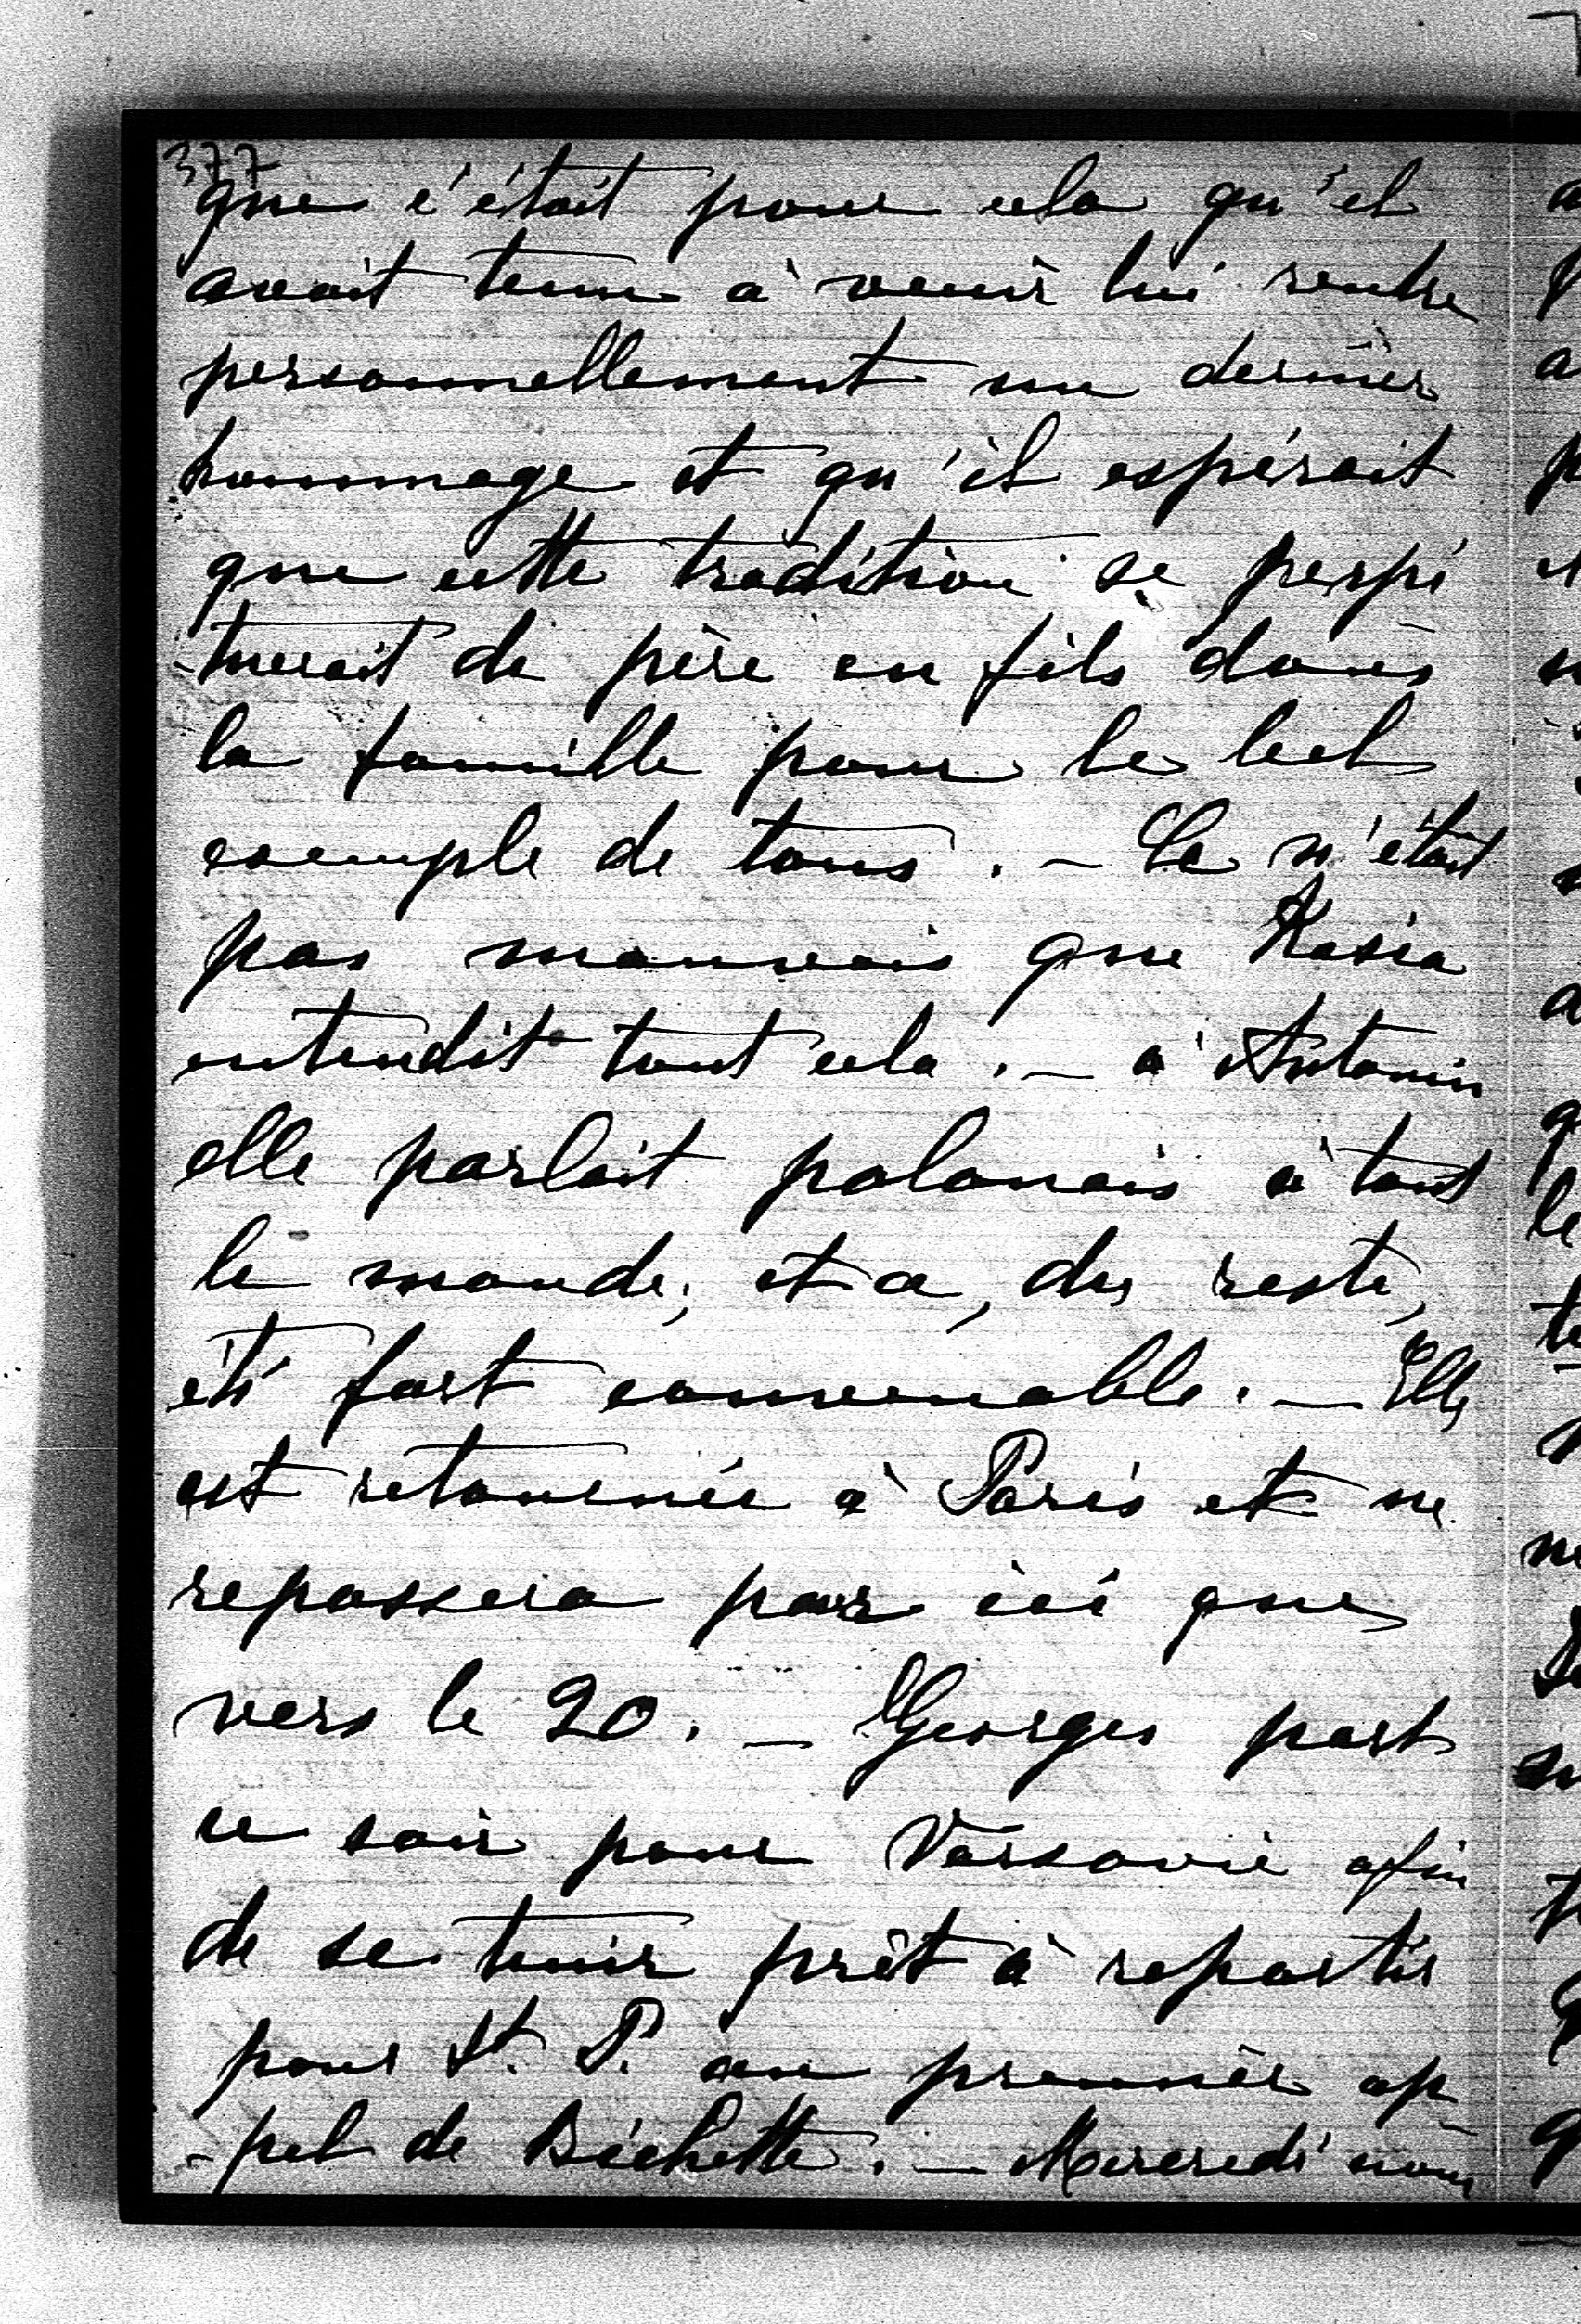 377
que c'était pour cela qu'il
avait tenu à venir lui rendre
personnellement un dernier
hommage et qu'il espérait
que cette tradition se perpé
-tuerait de père en fils dans
la famille pour le bel
exemple de tous. — Ce n'était
pas mauvais que Kasia
entendit tout cela. — à Antonin
elle parlait polonais à tout
le monde, et a, du reste,
été fort convenable. — Elle
est retournée à Paris et ne
repassera par ici que
vers le 20. — Georges part
ce soir pour Varsovie afin
de se tenir prêt à repartir
pour St. P. au premier ap
-pel de Bichette. — Mercredi nous